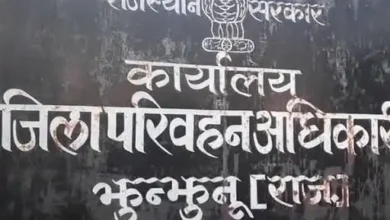 राजस्थान सरकार
कार्यालय
जिला परिवहन अधिकारी
झुन्झुनू [राज०]